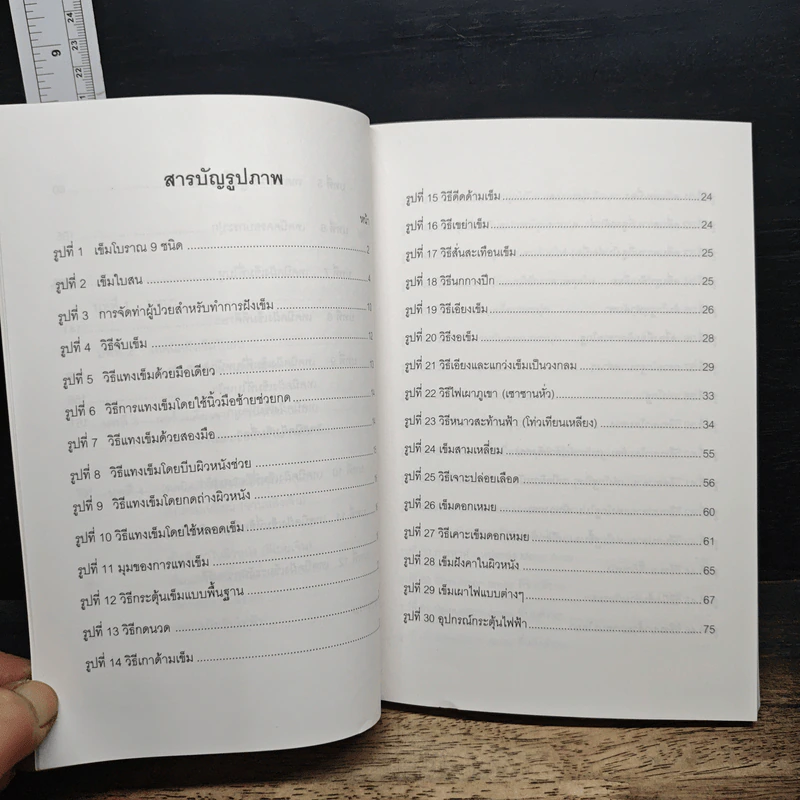 9
24
23
22
สารบัญรูปภาพ
หน้า
รูปที่ 1 เข็มโบราณ 9 ชนิด 2
รูปที่ 2 เข็มใบสน 4
รูปที่ 3 การจัดท่าผู้ป่วยสำหรับทำการฝังเข็ม 10
รูปที่ 4 วิธีจับเข็ม 12
รูปที่ 5 วิธีแทงเข็มด้วยมือเดียว
รูปที่ 6 วิธีการแทงเข็มโดยใช้นิ้วมือซ้ายช่วยกด
รูปที่ 7 วิธีแทงเข็มด้วยสองมือ
รูปที่ 8 วิธีแทงเข็มโดยบีบผิวหนังช่วย
รูปที่ 9 วิธีแทงเข็มโดยกดถ่างผิวหนัง
รูปที่ 10 วิธีแทงเข็มโดยใช้หลอดเข็ม
รูปที่ 11 มุมของการแทงเข็ม
รูปที่ 12 วิธีกระตุ้นเข็มแบบพื้นฐาน
รูปที่ 13 วิธีกดนวด
รูปที่ 14 วิธีเกาด้ามเข็ม
รูปที่ 15 วิธีดีดด้ามเข็ม 24
รูปที่ 16 วิธีเขย่าเข็ม 24
รูปที่ 17 วิธีสั่นสะเทือนเข็ม 25
รูปที่ 18 วิธีนกกางปีก 25
รูปที่ 19 วิธีเอียงเข็ม 26
รูปที่ 20 วิธีงอเข็ม 28
รูปที่ 21 วิธีเอียงและแกว่งเข็มเป็นวงกลม 29
รูปที่ 22 วิธีไฟเผาภูเขา (เซาซานหั่ว) 33
รูปที่ 23 วิธีหนาวสะท้านฟ้า (โท่วเทียนเหลียง) 34
รูปที่ 24 เข็มสามเหลี่ยม 55
รูปที่ 25 วิธีเจาะปล่อยเลือด 56
รูปที่ 26 เข็มดอกเหมย 60
รูปที่ 27 วิธีเคาะเข็มดอกเหมย 61
รูปที่ 28 เข็มฝังคาในผิวหนัง 65
รูปที่ 29 เข็มเผาไฟแบบต่างๆ 67
รูปที่ 30 อุปกรณ์กระตุ้นไฟฟ้า 75